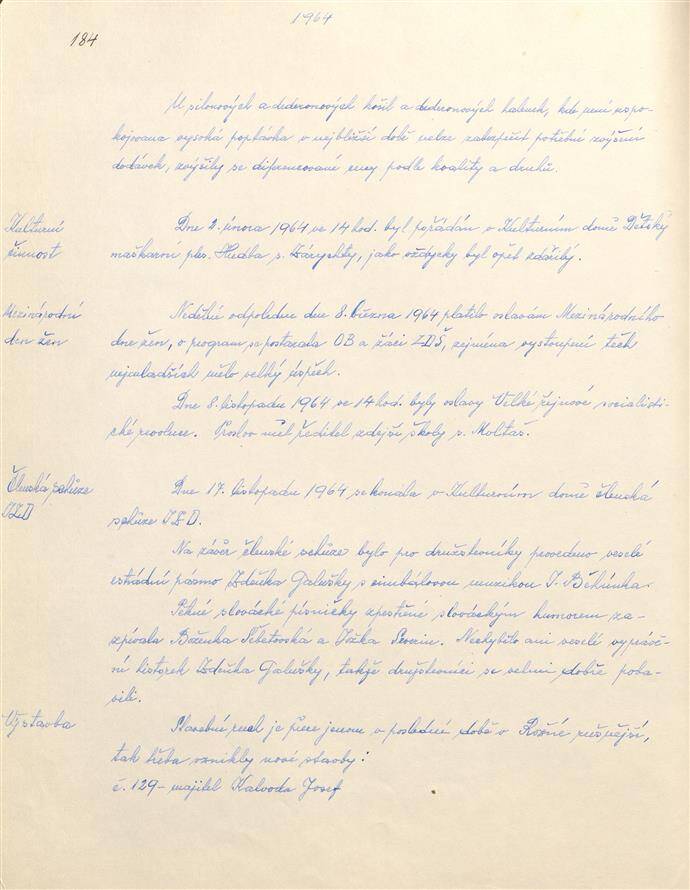 1964
184
U silonových a dederonových košil a dederonových halenek, kde není uspo-
kojována vysoká poptávka v nejbližší době nelze zabezpečit potřebné zvýšení
dodávek, zvýšily se diferencované ceny podle kvality a druhů.
Kulturní
činnost
Dne 2. února 1964 ve 14 hod. byl pořádán v Kulturním domě Dětský
maškarní ples. Hudba s. Zárychty, jako vždycky byl opět zdařilý.
Mezinárodní
den žen
Nedělní odpoledne dne 8. března 1964 platilo oslavám Mezinárodního
dne žen, o program se postarala OB a žáci ZDŠ, zejména vystoupení těch
nejmladších mělo velký úspěch.
Dne 8. listopadu 1964 ve 14 hod. byly oslavy Velké říjnové socialisti-
cké revoluce. Proslov měl ředitel zdejší školy s. Moltaš.
Členská schůze
JZD
Dne 17. listopadu 1964 se konala v Kulturním domě členská
schůze JZD.
Na závěr členské schůze bylo pro družstevníky provedeno veselé
estrádní pásmo Zdeňka Galušky s cimbálovou muzikou J. Běhůnka.
Pěkné slovácké písničky zpestřené slováckým humorem za-
zpívala Boženka Šebetovská a Jožka Severin. Nechybělo ani veselé vyprávě-
ní historek Zdeňka Galušky, takže družstevníci se velmi dobře poba-
vili.
Výstavba
Stavební ruch je přece jenom v poslední době v Rožné rušnější,
tak třeba vznikly nové stavby:
č. 129 - majitel Kalvoda Josef